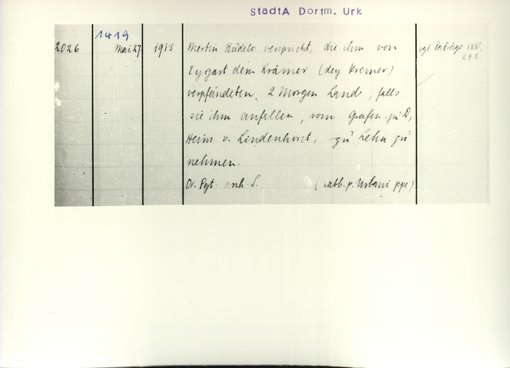 StadtA Dortm. Urk
1419
2026 Mai 27 1915 Mertin Rüdelo verspricht, die ihm von
Eygart dem Krämer (dey Kremer)
verpfändeten 2 Morgen Land, falls
sie ihm anfallen, vom Grafen zu D,
Heinr. v. Lindenhorst, zu Lehn zu
nehmen.
Or. Pgt. anh. S.
vgl. Beiträge